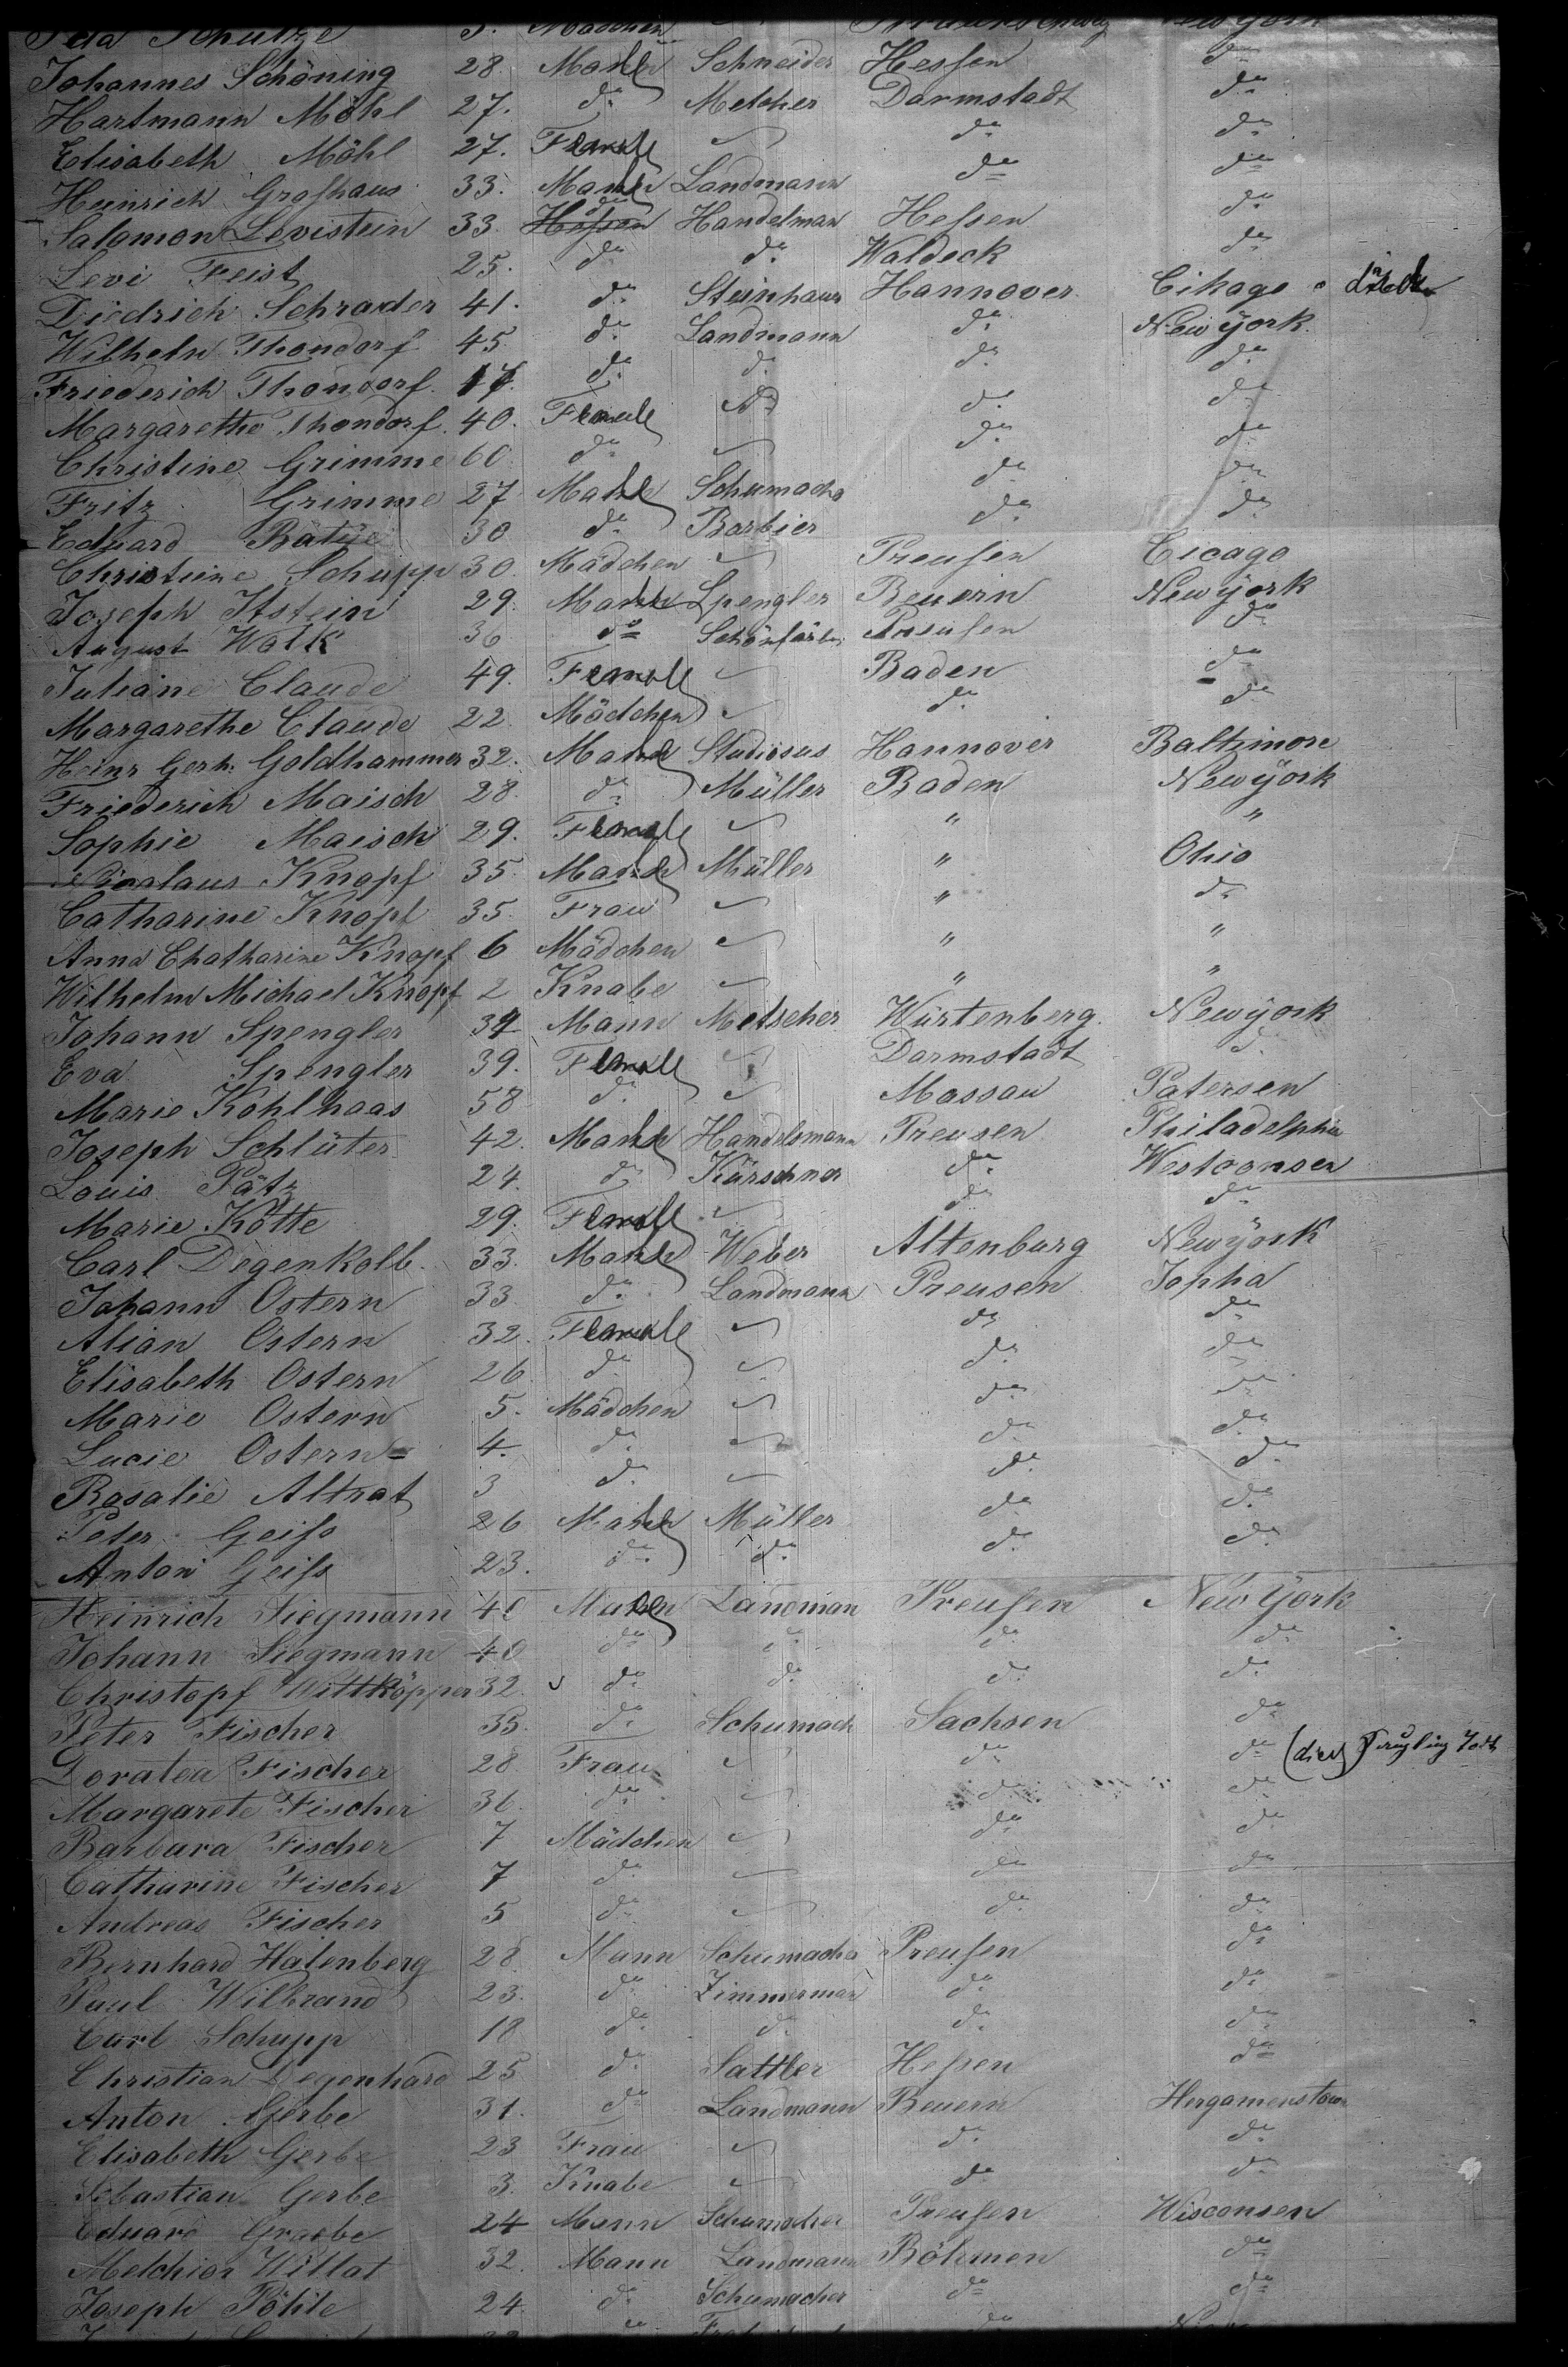 Schultze 3. Mädchen New York
Johannes Schöning 28. Male Schneider Hessen do
Hartmann Möhl 27. do Metcher Darmstadt do
Elisabeth Möhl 27. Female do do
Heinrich Groshaus 33. Male Landmann do do
Salomon Levistein 33. do Handelman Hessen do
Levi Feist 25. do do Waldeck do
Diedrich Schrader 41. do Steinhaur Hannover Cihago
Wilhelm Thondorf 45. do Landmann do New York
Friederich Thondorf 17. do do do do
Margarethe Thondorf 40. Female do do
Christine Grimme 60 do do do
Fritz Grimme 27 Male Schumacho do do
Eduard Bätije 30 do Barbier do do
Christiene Schupp 30. Mädchen Preusen Cicago
Joseph Itstein 29. Male Spengler Beuern New York
August Wolk 36 do Schönfärber Preusen do
Juliane Claude 49. Female Baden do
Margarethe Claude 22. Mädchen do do
Heinr Gerh. Goldhammer 32. Male Studiosus Hannover Baltimore
Friederich Maisch 28. do Müller Baden New York
Sophie Maisch 29. Female " "
Nicalaus Knopf 35. Male Müller " Ohio
Catharine Knopf 35. Frau " do
Anna Chatharine Knopf 6 Mädchen " "
Wilhelm Michael Knopf 2 Knabe " "
Johann Spengler 34 Mann Metscher Würtenberg New York
Eva Spengler 39. Female Darmstadt do
Marie Kohlhaas 58 do Massau Patersen
Joseph Schlüter 42. Male Handelsmann Preusen Philadelphia
Louis Pätz 24. do Kürschner do Westconsen
Marie Kötte 29. Female do do
Carl Degenkolb 33. Male Weber Altenburg New York
Johann Ostern 33 do Landmann Preusen Jopha
Alian Ostern 32. Female do do
Elisabeth Ostern 26 do do do
Marie Ostern 5. Mädchen do do
Lucie Ostern 4. do do do
Rosalie Altrat 3 do do do
Peter Geiss 26 Male Müller do do
Anton Geiss 23. do do do do
Heinrich Siegmann 40 Male Landman Preusen New York
Johann Siegmann 40 do do do do
Christopf Wittköpper 32. do do do do
Peter Fischer 35. do Schumach Sachsen do
Doratea Fischer 28 Frau do do (died)
Margarete Fischer 36. do do do
Barbara Fischer 7 Mädchen do do
Catharine Fischer 7 do do do
Andreas Fischer 5 do do do
Bernhard Halenberg 28 Mann Schumacho Preusen do
Paul Wilbrand 23. do Zimmerman do do
Carl Schupp 18 do do do do
Christian Degenhard 25 do Sattler Hessen do
Anton Gerbe 31. do Landmann Beuern Hergamenstown
Elisabeth Gerbe 23 Frau do do
Sebastian Gerbe 3. Knabe do do
Eduard Graebe 24 Mann Schumacher Preusen Wisconsen
Melchior Willat 32. Mann Landmann Böhmen do
Joseph Pöhle 24. do Schumacher do do